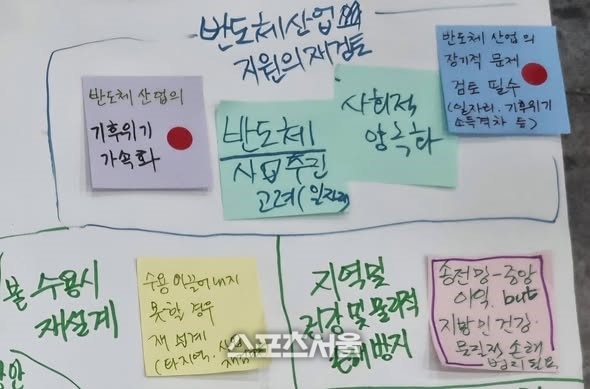 반도체 산업
지원의 재검토
반도체 산업의
기후위기
가속화
반도체
사업 추진
고려(일자리)
사회적
양극화
반도체 산업의
장기적 문제
검토 필수
(일자리. 기후위기
소득격차 등)
수용시
재설계
수용 이끌어내지
못할 경우
재 설계
(타지역.
지역민
건강 및 물리적
손해 방지
송전망-중앙
이익. but
지방민 건강.
물질적 손해
스포츠서울